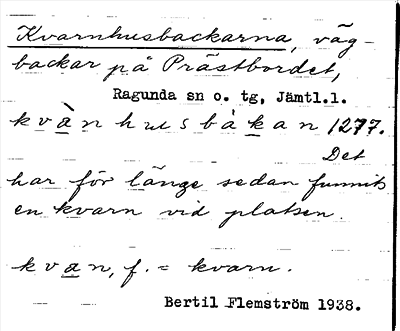 Kvarnhusbackarna, väg-
backar på Prästbordet,
Ragunda sn o. tg, Jämtl.l.
kvàn hus bàkan 1277.
Det
har för länge sedan funnits
en kvarn vid platsen.
kvan, f. = kvarn.
Bertil Flemström 1938.